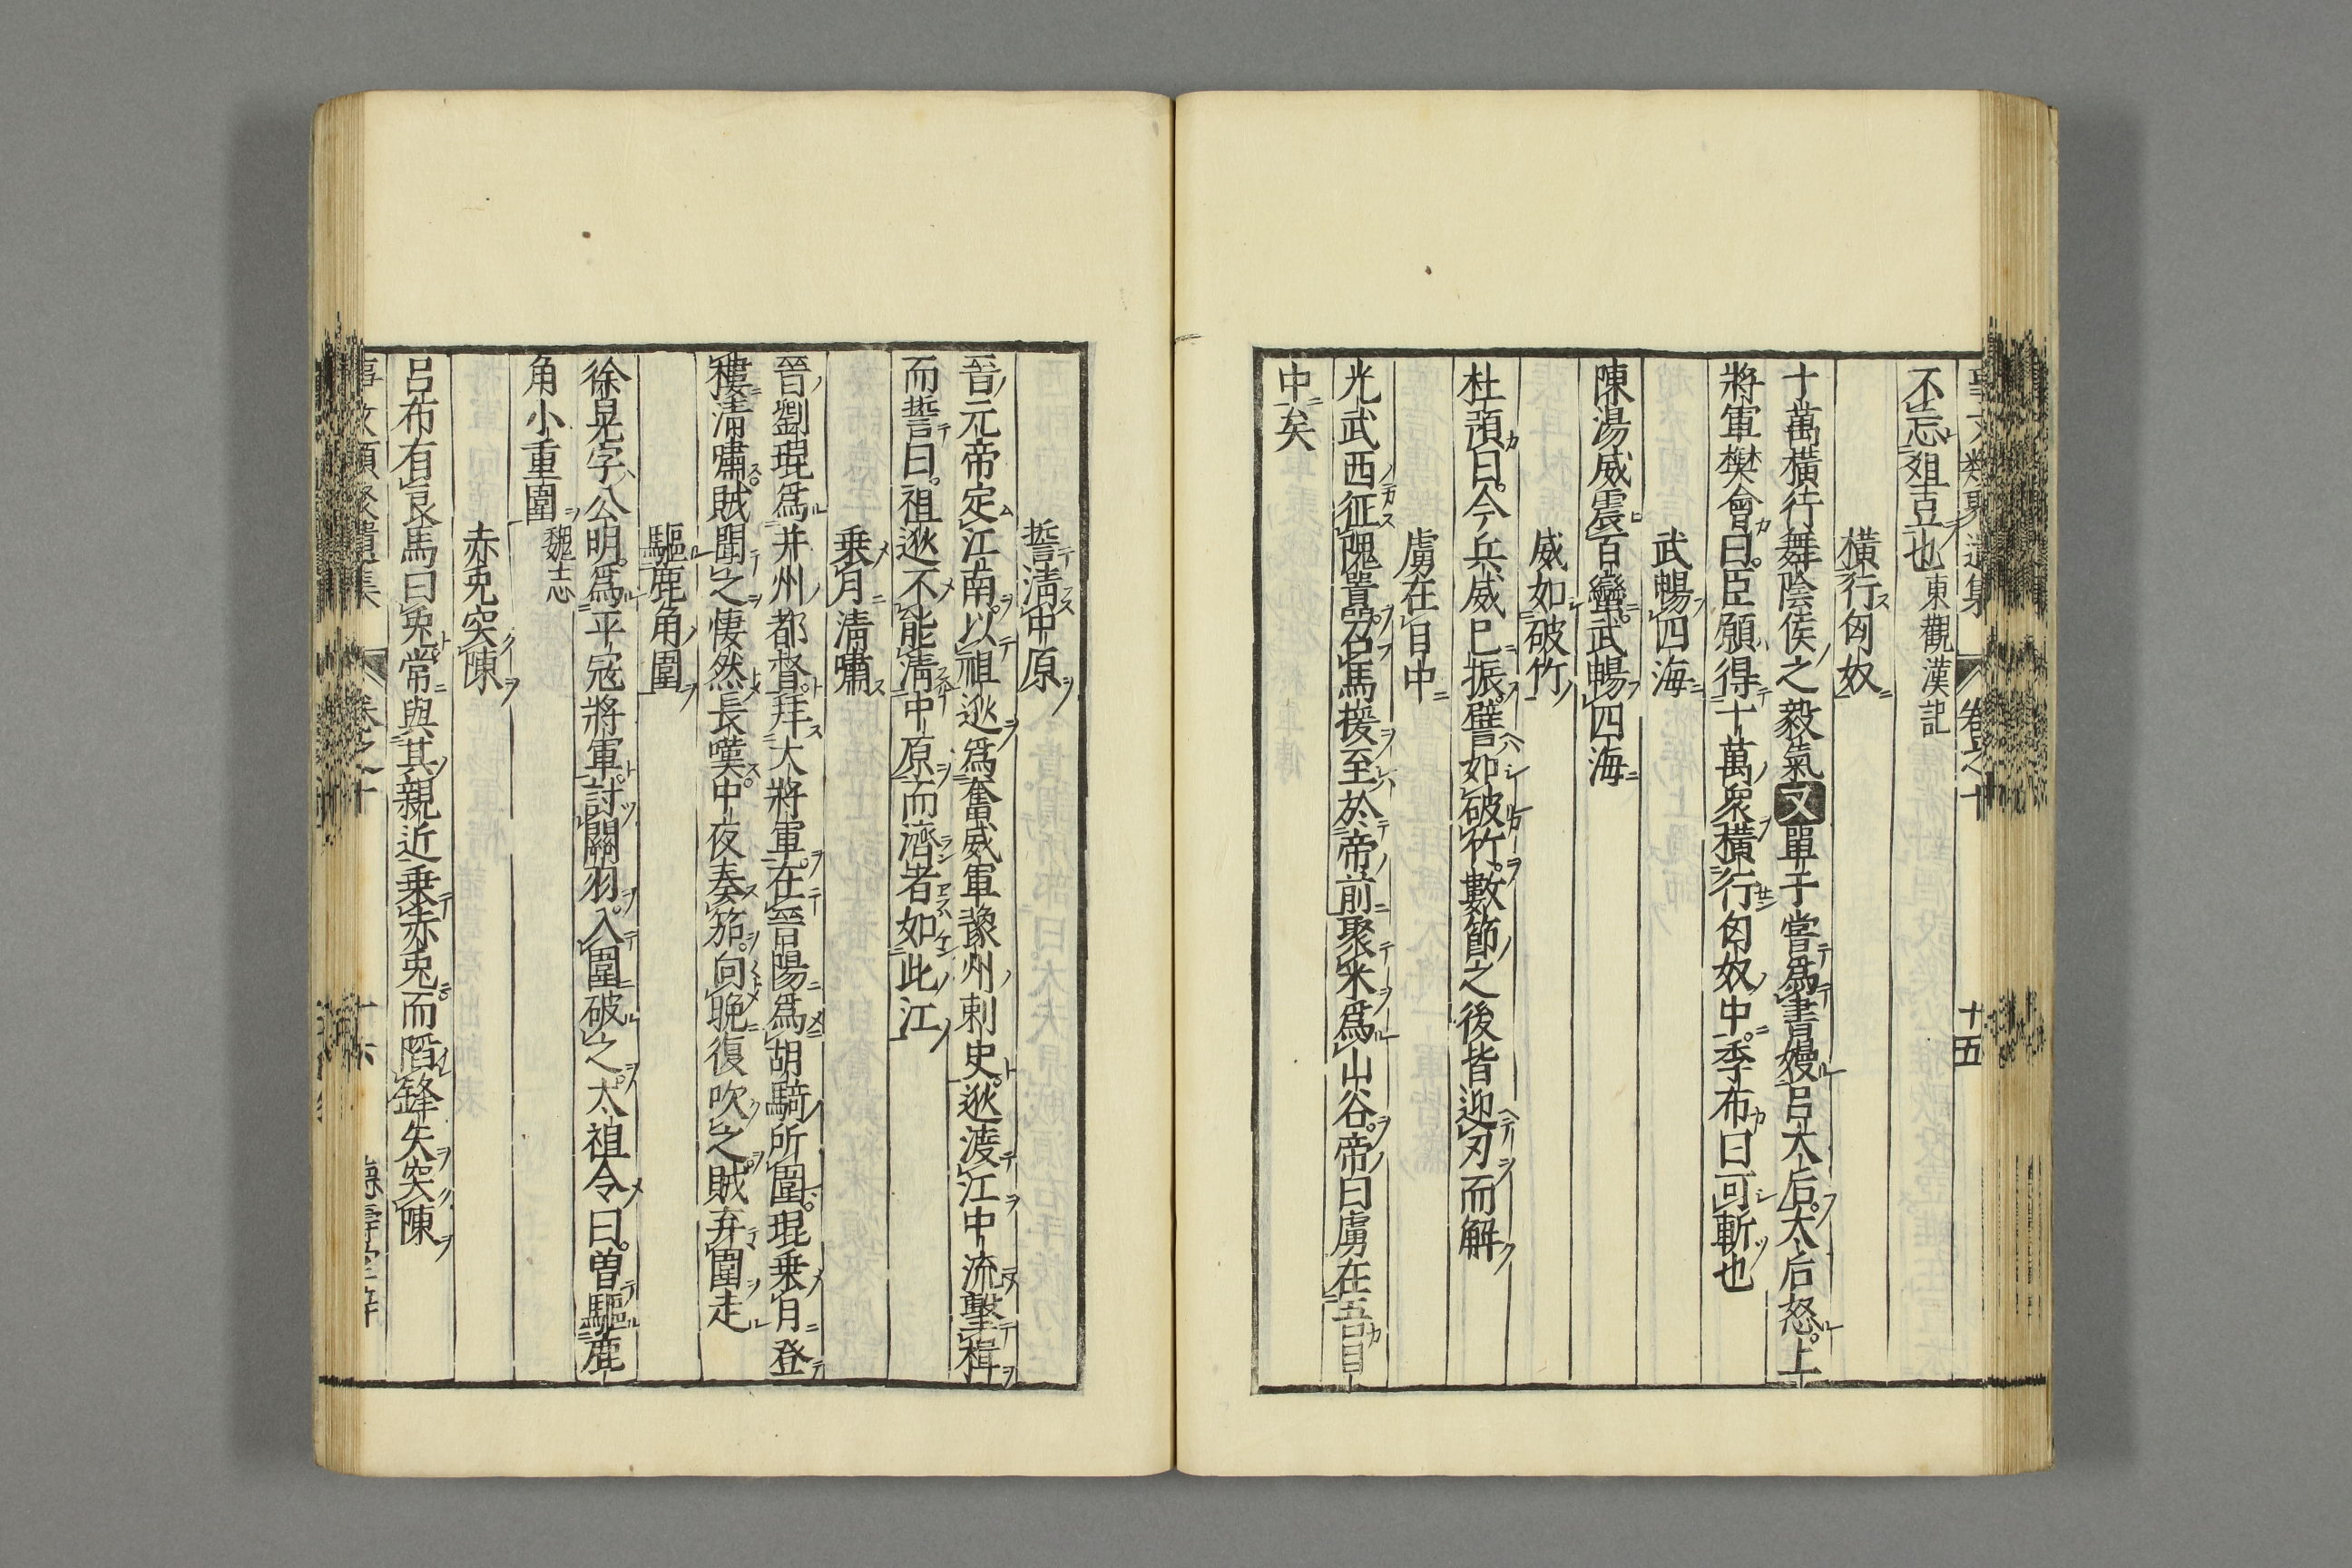 事文類聚遺集 卷之十 十五
不忘爼豆也東觀漢記
橫行匈奴
十萬橫行舞陰侯之毅氣又單于嘗爲書嫚呂太后太后怒上
將軍樊會曰臣願得十萬衆橫行匈奴中季布曰可斬也
武暢四海
陳湯威震百蠻武暢四海
威如破竹
杜預曰今兵威已振譬如破竹數節之後皆迎刃而解
虜在目中
光武西征隗囂召馬援至於帝前聚米爲山谷帝曰虜在吾目
中矣
誓淸中原
晉元帝定江南以祖逖爲奮威軍豫州刺史逖渡江中流擊楫
而誓曰祖逖不能淸中原而濟者如此江
乘月淸嘯
晉劉琨爲并州都督拜大將軍在晉陽爲胡騎所圍琨乘月登
樓淸嘯賊聞之悽然長嘆中夜奏笳向晩復吹之賊弃圍走
驅鹿角圍
徐晃字公明爲平寇將軍討關羽入圍破之太祖令曰曽驅鹿
角小重圍魏志
赤兎突陳
呂布有良馬曰兎常與其親近乘赤兎而陷鋒矢突陳
事文類聚遺集 卷之十 十六